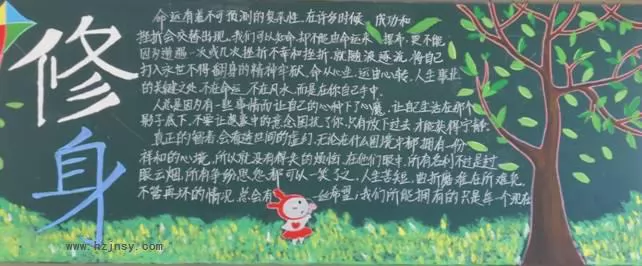 修身
命运有着不可预测的复杂性。在许多时候,成功和
挫折会交替出现。我们可以知命却不能由命运来摆布,更不能
因为遭遇一次或几次挫折不幸和挫折,就随波逐流,将自己
打入永世不得翻身的精神牢狱。命从心生,运由心转。人生事业
的关键之处,不在命运,不在风水,而是在你自己手中。
人总是因为有一些事情而让自己的心种下了心魔,让自己生活在那个
影子底下。不要让想象中的意念困扰了你,只有放下过去,才能获得宁静。
真正的智者,会看透世间的虚幻,无论在什么困境中都拥有一份
祥和的心境,所以就没有得失的烦恼,在他们眼中,所有名利不过是过
眼云烟,所有争纷恩怨都可以一笑了之,人生苦短,曲折磨难在所难免,
不管再坏的情况,总会有一丝希望,我们所能拥有的只是每一个现在
www.hzjnsy.com